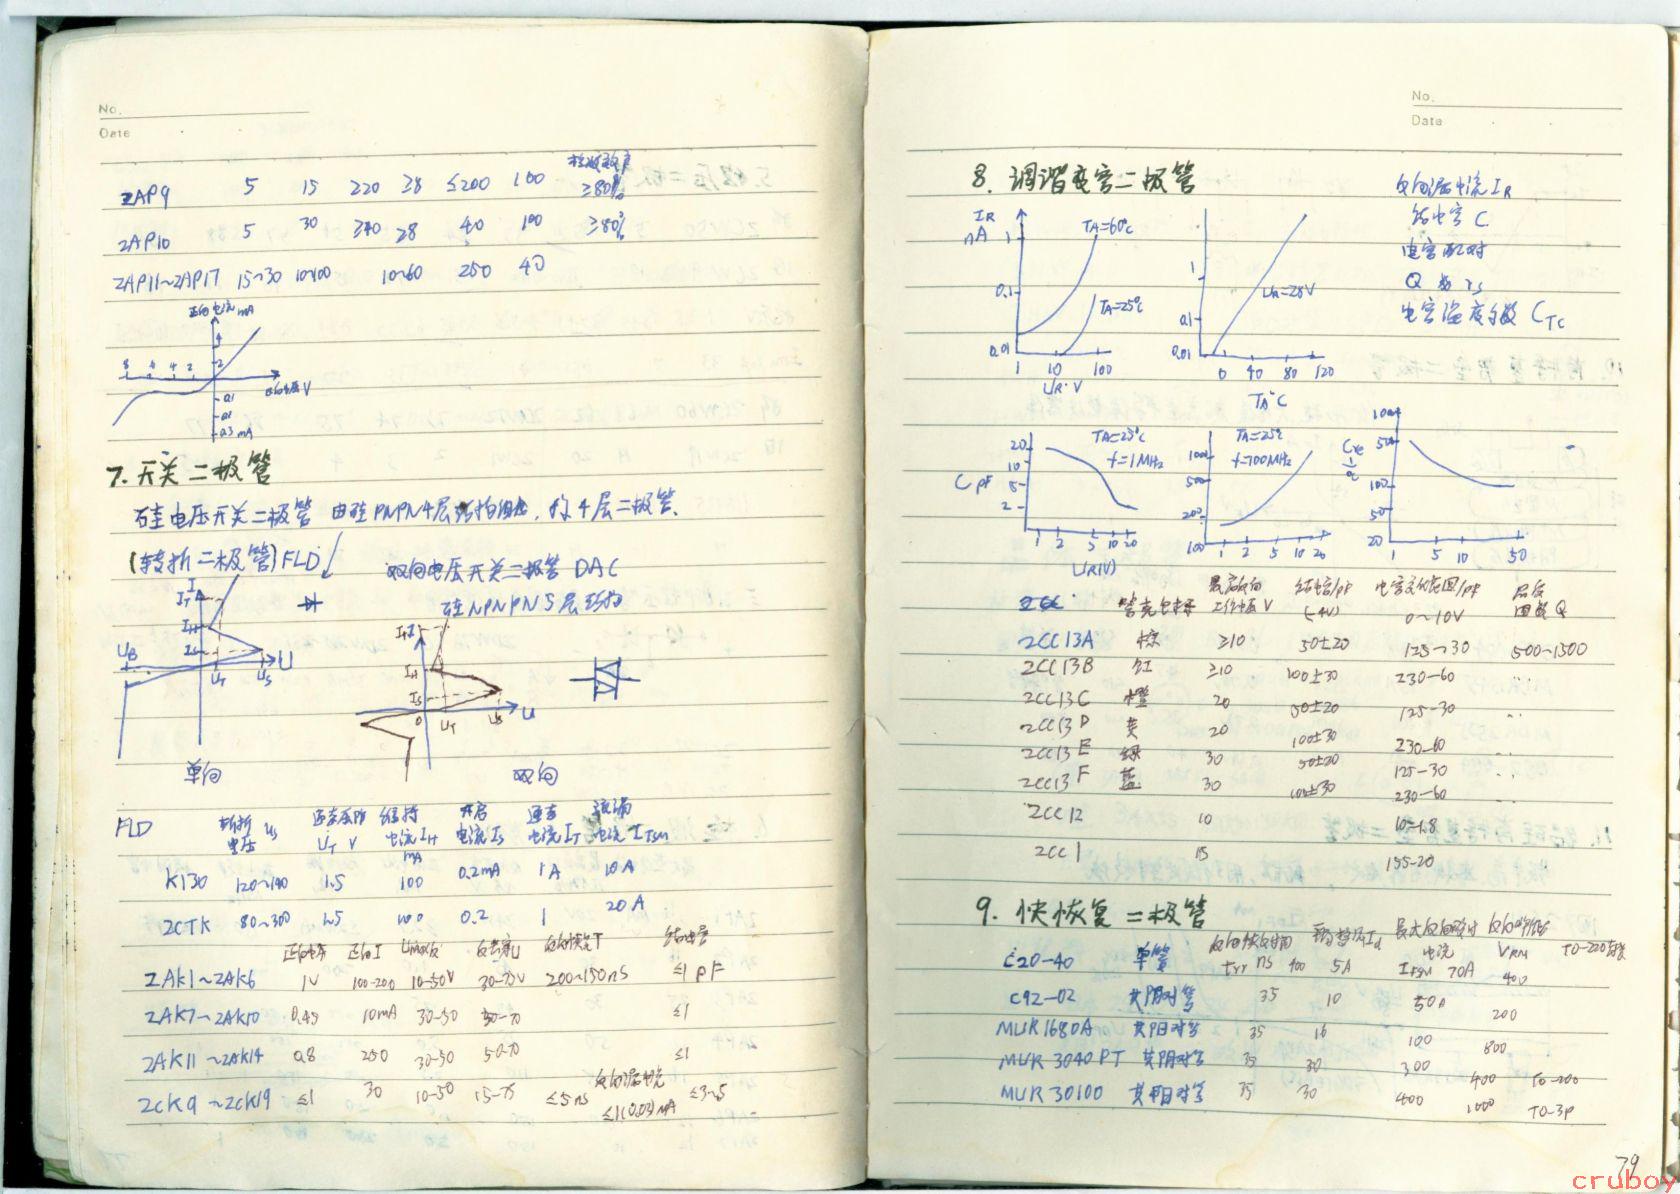 No.
Date
检波效率
2AP9 5 15 220 38 ≤200 100 ≥80%
2AP10 5 30 340 28 40 100 ≥80%
2AP11~2AP17 15~30 10~100 10~60 250 40
正向电流mA
8 6 4 2
2
反向电压V
0.1
0.3 mA
7. 开关二极管
硅电压开关二极管 由硅PNPN4层结构组成, 称4层二极管.
(转折二极管)FLD
双向电压开关二极管 DAC
硅NPNPN5层结构
I
IT
IH
IS
UB UT US U
单向
I
IH
IS
0 UT US U
双向
FLD 转折电压 US 通态压降 UT V 维持电流IH mA 开启电流IS 通态电流IT 浪涌电流ITSM
K130 120~140 1.5 100 0.2mA 1A 10A
2CTK 80~300 1.5 100 0.2 1 20A
正向电压 正向I 反向恢复T 结电容
2AK1~2AK6 1V 100-200 10-50V 30-75V 200~150ns ≤1PF
2AK7~2AK10 0.45 10mA 30-50 50-70 ≤1
2AK11~2AK14 0.8 250 30-50 50-70 ≤1
反向漏电流
2CK9~2CK19 ≤1 30 10-50 15-75 ≤5ns ≤1(0.03)MA ≤3~5
No.
Date
8. 调谐变容二极管
反向漏电流IR
结电容C
电容配对
Q 或 rs
电容温度系数 CTC
IR nA
1
0.1
0.01
TA=60°C
TA=25°C
1 10 100
UR V
1
0.1
0.01
UR=28V
0 40 80 120
TA°C
C PF
20
10
5
2
TA=25°C
f=1MHz
1 2 5 10 20
UR(V)
1000
500
200
100
TA=25°C
f=700MHz
1 2 5 10 20
1000
500
100
50
20
1 5 10 50
管壳色标 最高反向工作电压V 结电容/PF (-4V) 电容变化范围/PF 0~10V 品质因数Q
2CC13A 棕 ≥10 50±20 125~30 500~1500
2CC13B 红 ≥10 100±30 230-60 ..
2CC13C 橙 20 50±20 125-30 ..
2CC13D 黄 20 100±30 230-60
2CC13E 绿 30 50±20 125-30 ..
2CC13F 蓝 30 100±30 230-60
2CC12 10 10-1.8
2CC1 15 155-20
9. 快恢复二极管
反向恢复时间 trr ns 平均整流Id 最大反向浪涌电流 IFSM 反向峰压 VRM
C20-40 单管 400 5A 70A 400 TO-220封装
C92-02 共阴对管 35 10 50A 200
MUR1680A 共阳对管 35 16 100 800
MUR3040PT 共阴对管 35 30 300 400 TO-200
MUR30100 共阳对管 35 30 400 1000 TO-3P
79
cruboy